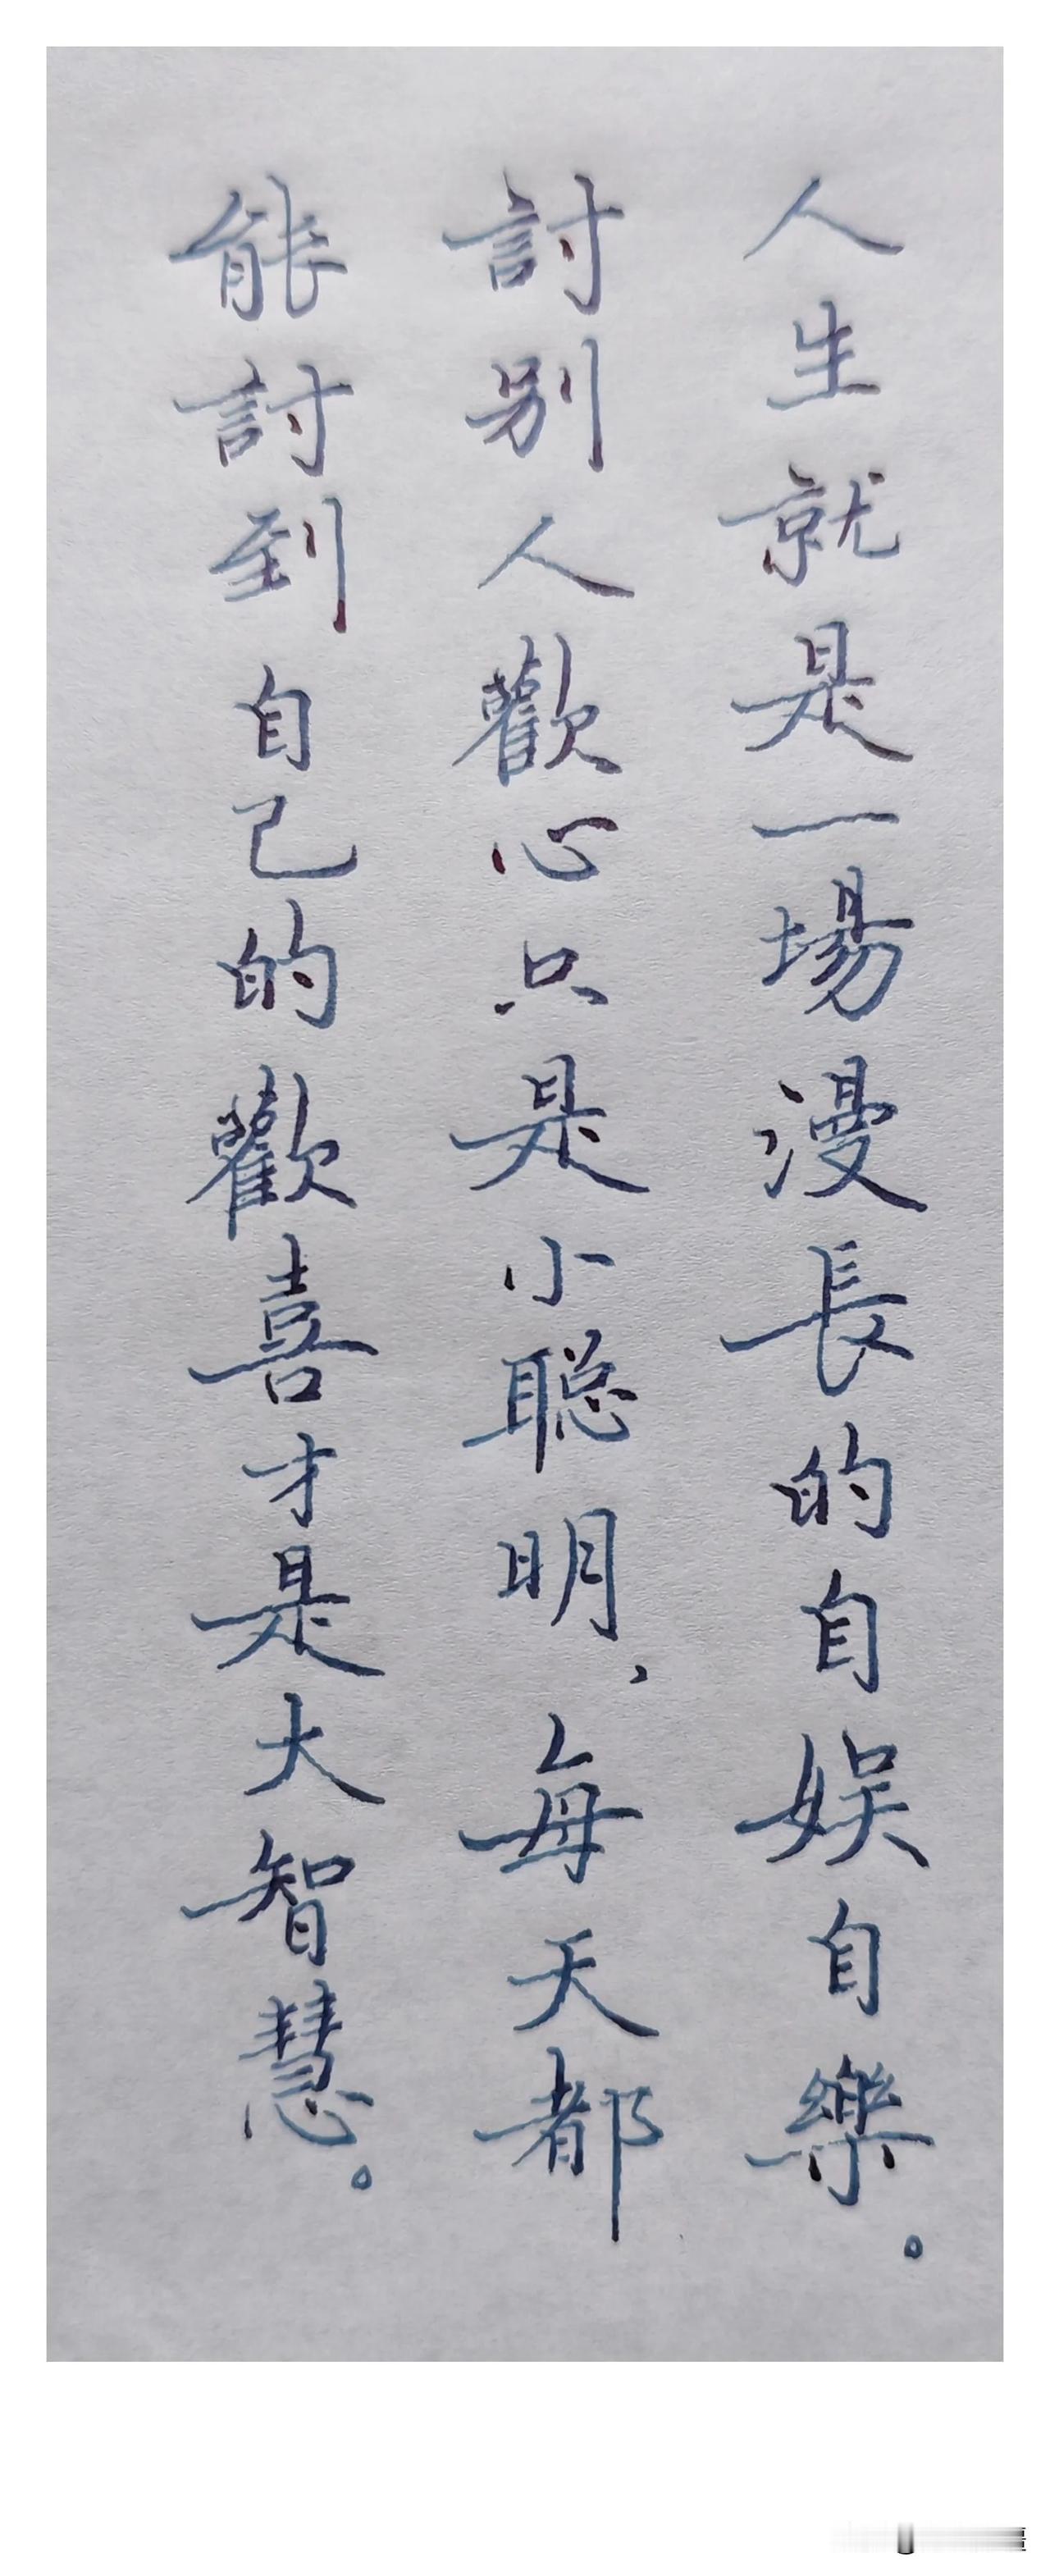 人生就是一場漫長的自娛自樂。
討别人歡心只是小聪明，每天都
能討到自己的歡喜才是大智慧。